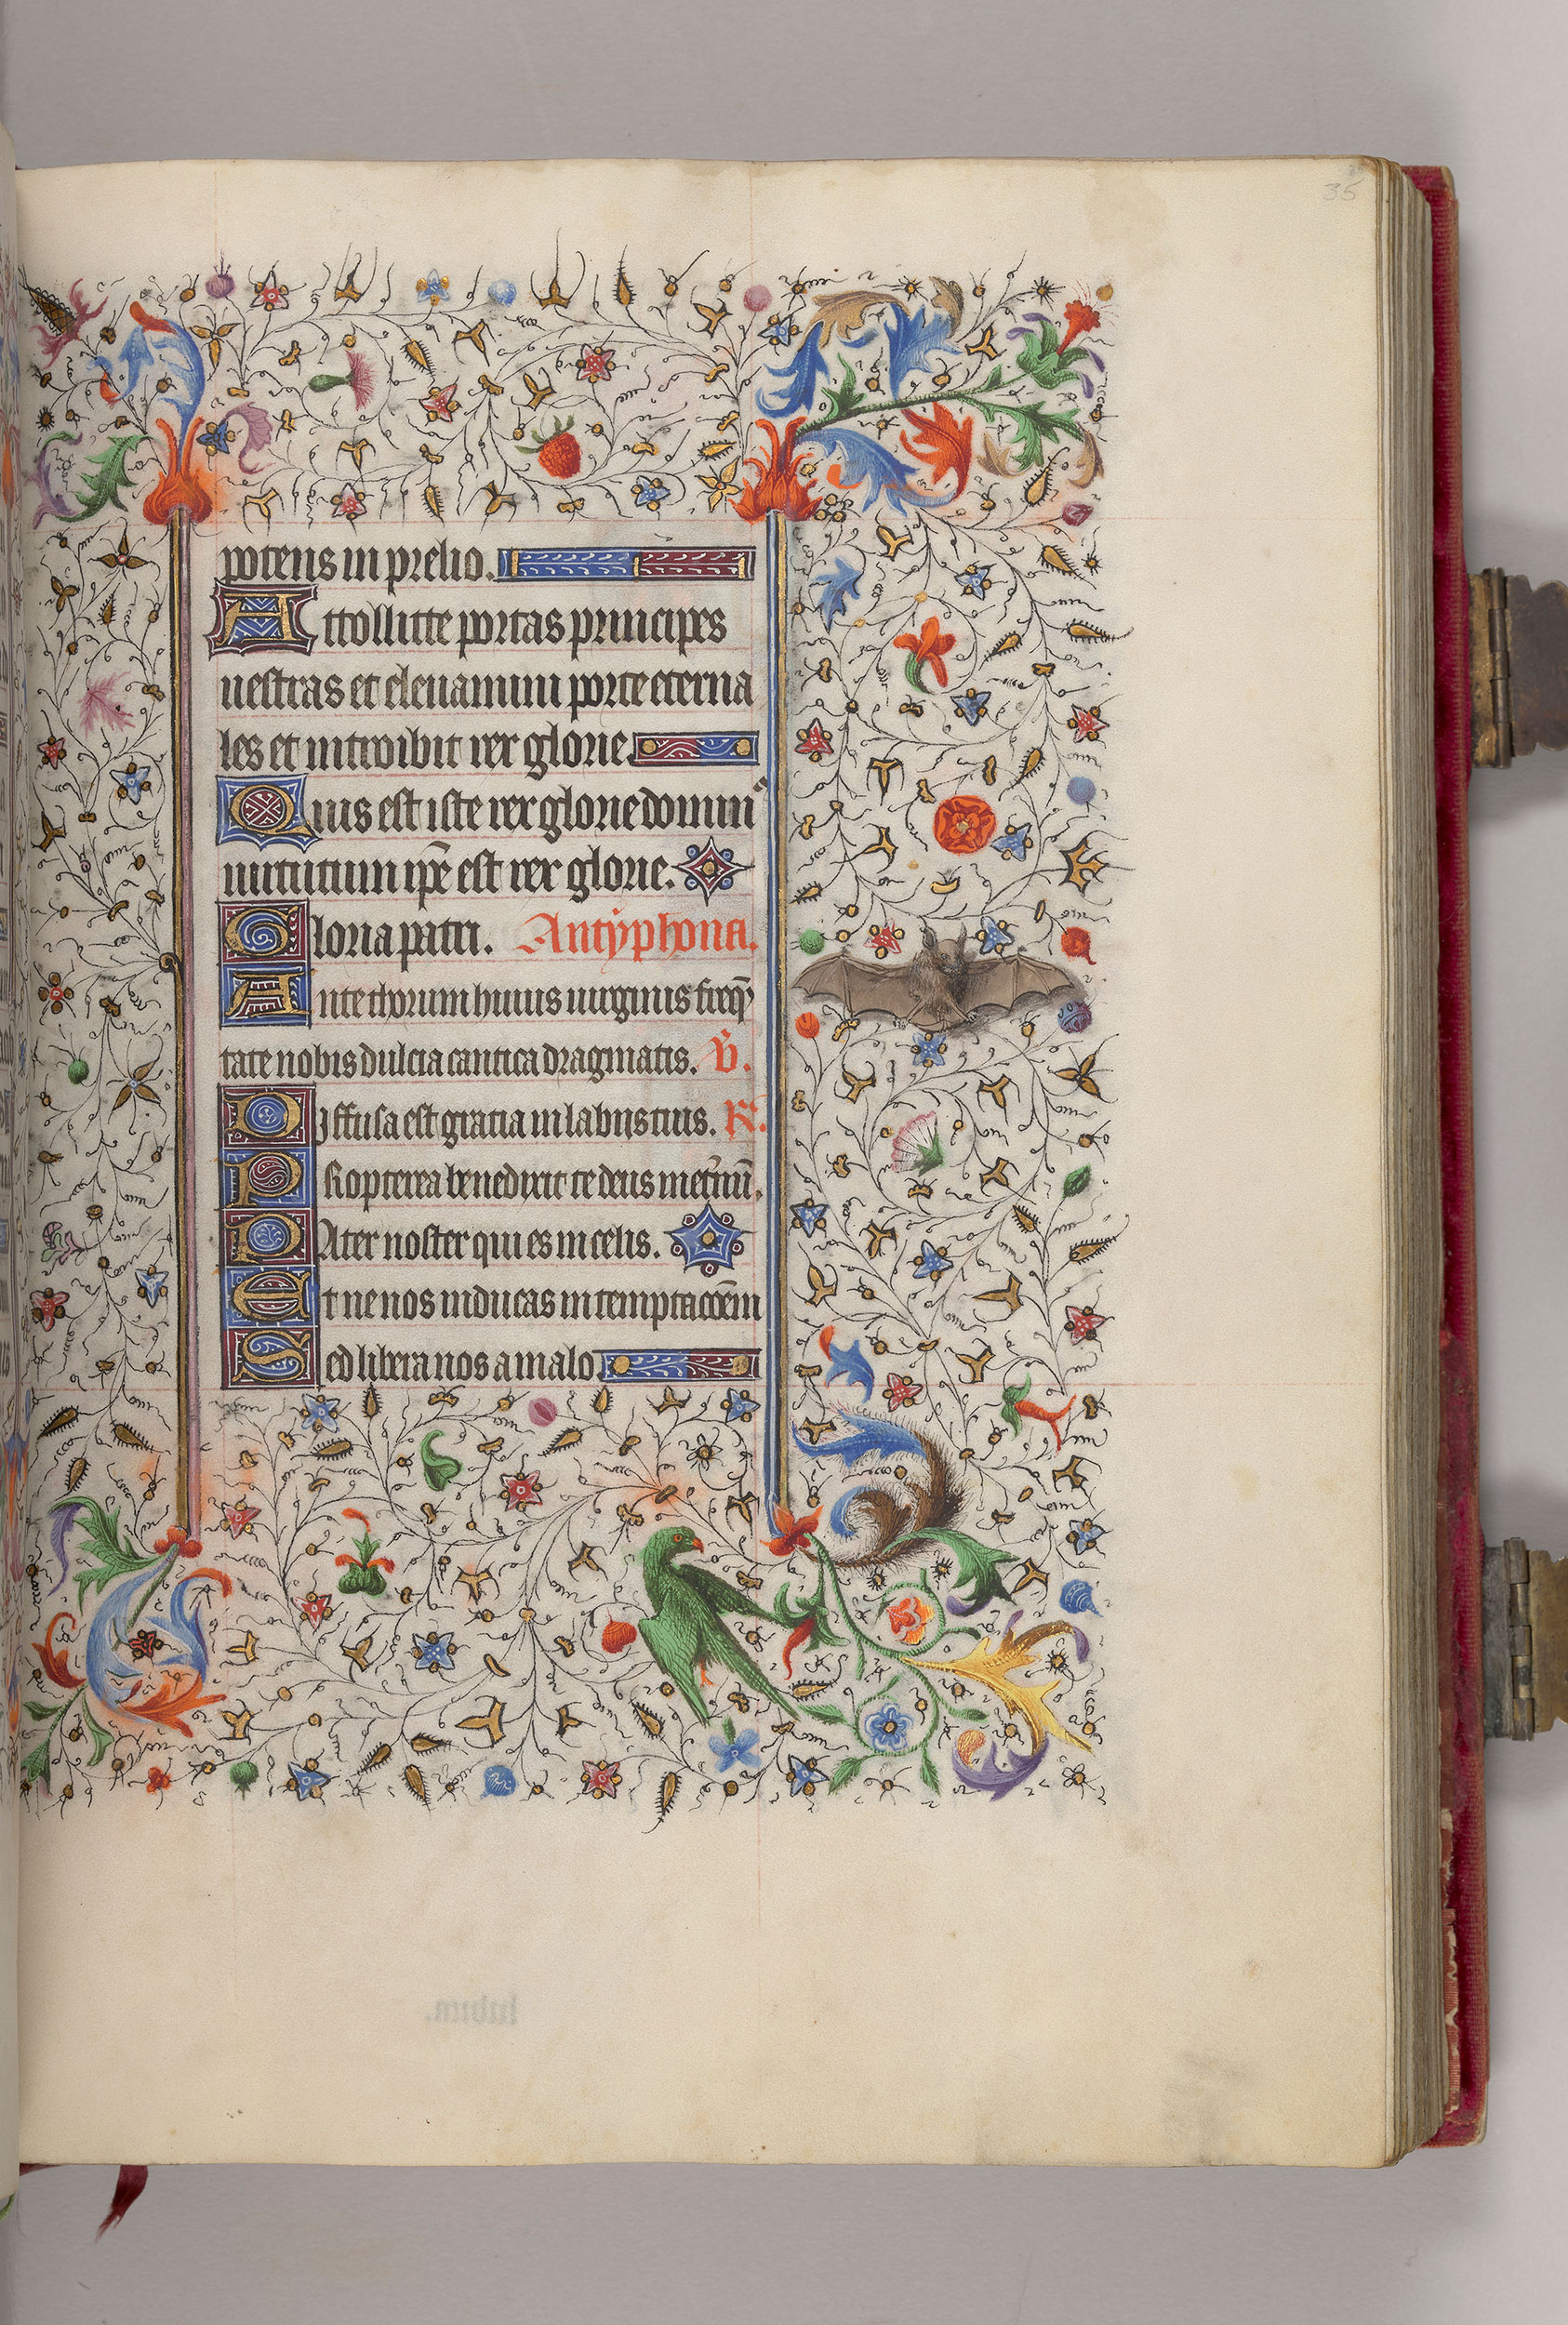 35
potens in prelio.
Attollitte portas principes
uestras et eleuamini porte eterna
les et introibit rex glorie.
Quis est iste rex glorie domin9
uirtutum ip̄e est rex glorie.
Gloria patri. Antyphona.
Ante thorum huius uirginis freq̄
tate nobis dulcia cantica dragmatis. V̄.
Diffusa est gratia in labiis tuis. R̄.
Propterea benedixit te deus in et̄nū.
Pater noster qui es in celis.
Et ne nos inducas in temptacōem
Sed libera nos a malo.